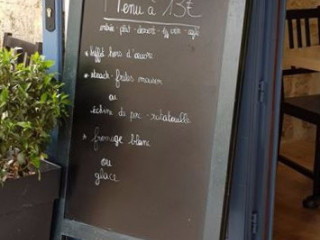 Menu à 13€
entrée - plat - dessert - 1/4 vin - café
• buffet hors d'œuvre
• steack - frites maison
ou
échine de porc - ratatouille
• fromage blanc
ou
glace